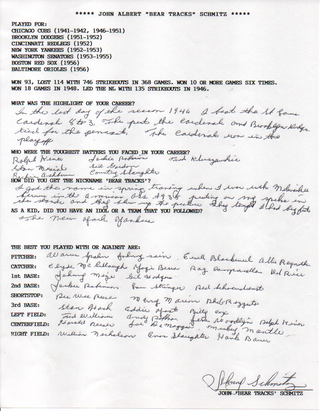 ***** JOHN ALBERT "BEAR TRACKS" SCHMITZ *****
PLAYED FOR:
CHICAGO CUBS (1941-1942, 1946-1951)
BROOKLYN DODGERS (1951-1952)
CINCINNATI REDLEGS (1952)
NEW YORK YANKEES (1952-1953)
WASHINGTON SENATORS (1953-1955)
BOSTON RED SOX (1956)
BALTIMORE ORIOLES (1956)
WON 93, LOST 114 WITH 746 STRIKEOUTS IN 366 GAMES. WON 10 OR MORE GAMES SIX TIMES.
WON 18 GAMES IN 1948. LED THE NL WITH 135 STRIKEOUTS IN 1946.
WHAT WAS THE HIGHLIGHT OF YOUR CAREER?
In the last day of the season 1946 I beat the St Louis
Cardinals to 3. The put the Cardinals and Brooklyn
tied for the pennant. The Cardinals won in the
playoff
WHO WERE THE TOUGHEST BATTERS YOU FACED IN YOUR CAREER?
Ralph Kiner Jackie Robinson Ted Kluszewski
Stan Musial Gil Hodges
Country Slaughter
HOW DID YOU GET THE NICKNAME "BEAR TRACKS"?
I got the name in spring training when I was with Milwaukee
AS A KID, DID YOU HAVE AN IDOL OR A TEAM THAT YOU FOLLOWED?
The New York Yankees
THE BEST YOU PLAYED WITH OR AGAINST ARE:
PITCHER: Warren Spahn Johnny Sain Ewell Blackwell Allie Reynolds
CATCHER: Clyde McCullough Yogi Berra Roy Campanella Del Rice
1st BASE: Johnny Mize Gil Hodges
2nd BASE: Jackie Robinson Red Schoendienst
SHORTSTOP: Pee Wee Reese Marty Marion Phil Rizzuto
3rd BASE: Stan Hack Eddie Billy Cox
LEFT FIELD: Ted Williams Andy Pafko Ralph Kiner
CENTERFIELD: Joe DiMaggio Mickey Mantle
RIGHT FIELD: Nicholson Enos Slaughter Hank Bauer
Johnny Schmitz
JOHN "BEAR TRACKS" SCHMITZ